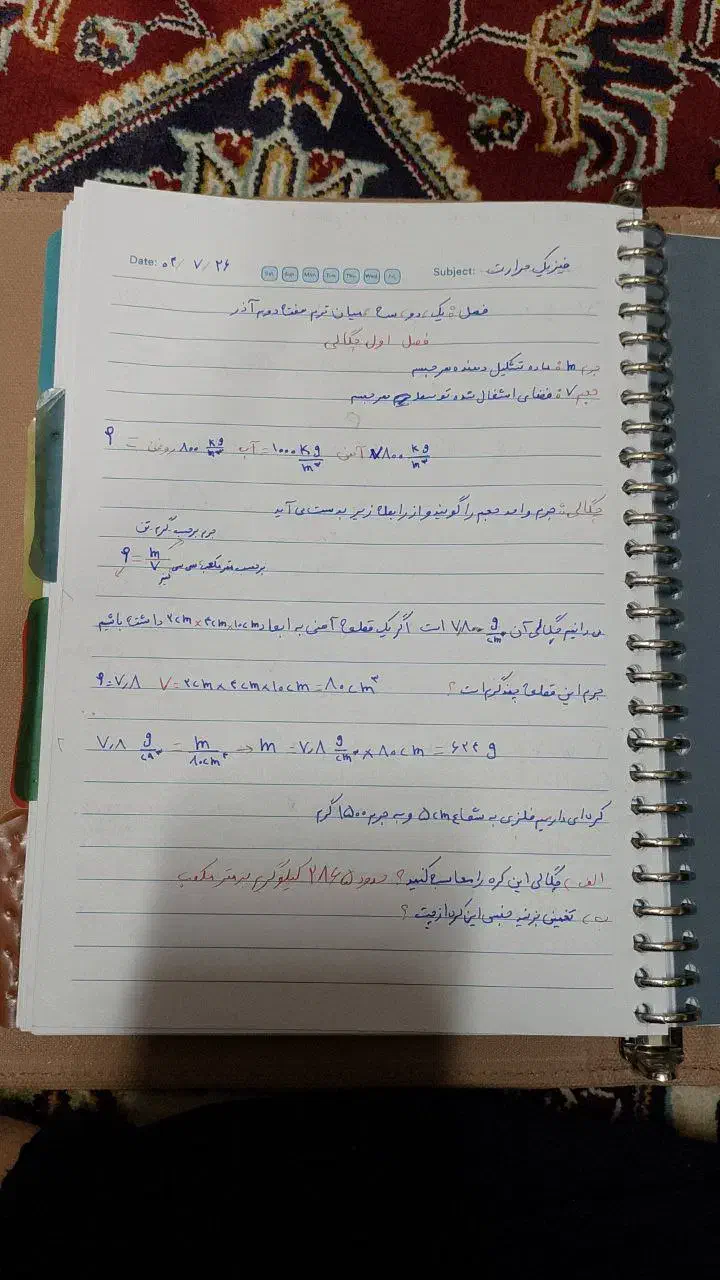 Date: ۰۴/ ۷/ ۲۶
Sat Sun Mon Tue Thu Wed Fri
Subject: فیزیک حرارت
فصل: یک، دو، سه میان ترم هفته دوم آذر
فصل اول چگالی
جرم m: ماده تشکیل دهنده هر جسم
حجم V: فضای اشغال شده توسط هر جسم
ρ = روغن ۸۰۰ kg/m³ آب = ۱۰۰۰ kg/m³ آهن ۷۸۰۰ kg/m³
چگالی: جرم واحد حجم را گویند و از رابطه زیر بدست می آید
جرم برحسب گرم، تن
ρ = m/V
برحسب متر مکعب، سی سی
لیتر
می دانیم چگالی آن ۷٫۸۰۰ g/cm³ است اگر یک قطعه آهنی به ابعاد ۲cm×۴cm×۱۰cm داشته باشیم
جرم این قطعه چند گرم است؟ ρ=۷٫۸ V=۲cm×۴cm×۱۰cm=۸۰cm³
۷٫۸ g/cm³ = m/۸۰cm³ → m = ۷٫۸ g/cm³ × ۸۰cm = ۶۲۴ g
کره ای داریم فلزی به شعاع ۵cm و به جرم ۱۵۰۰ گرم
الف) چگالی این کره را محاسبه کنید؟ حدود ۲۸۶۵ کیلوگرم بر متر مکعب
ب) تخمین بزنید جنس این کره از چیست؟